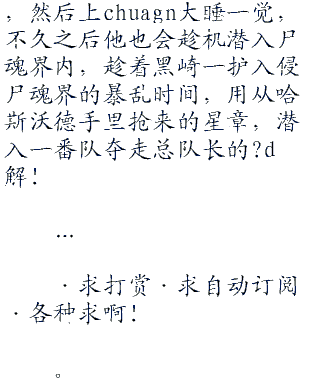 ，然后上chuagn大睡一觉，
不久之后他也会趁机潜入尸
魂界内，趁着黑崎一护入侵
尸魂界的暴乱时间，用从哈
斯沃德手里抢来的星章，潜
入一番队夺走总队长的?d
解！
…
·求打赏·求自动订阅
·各种求啊！
。